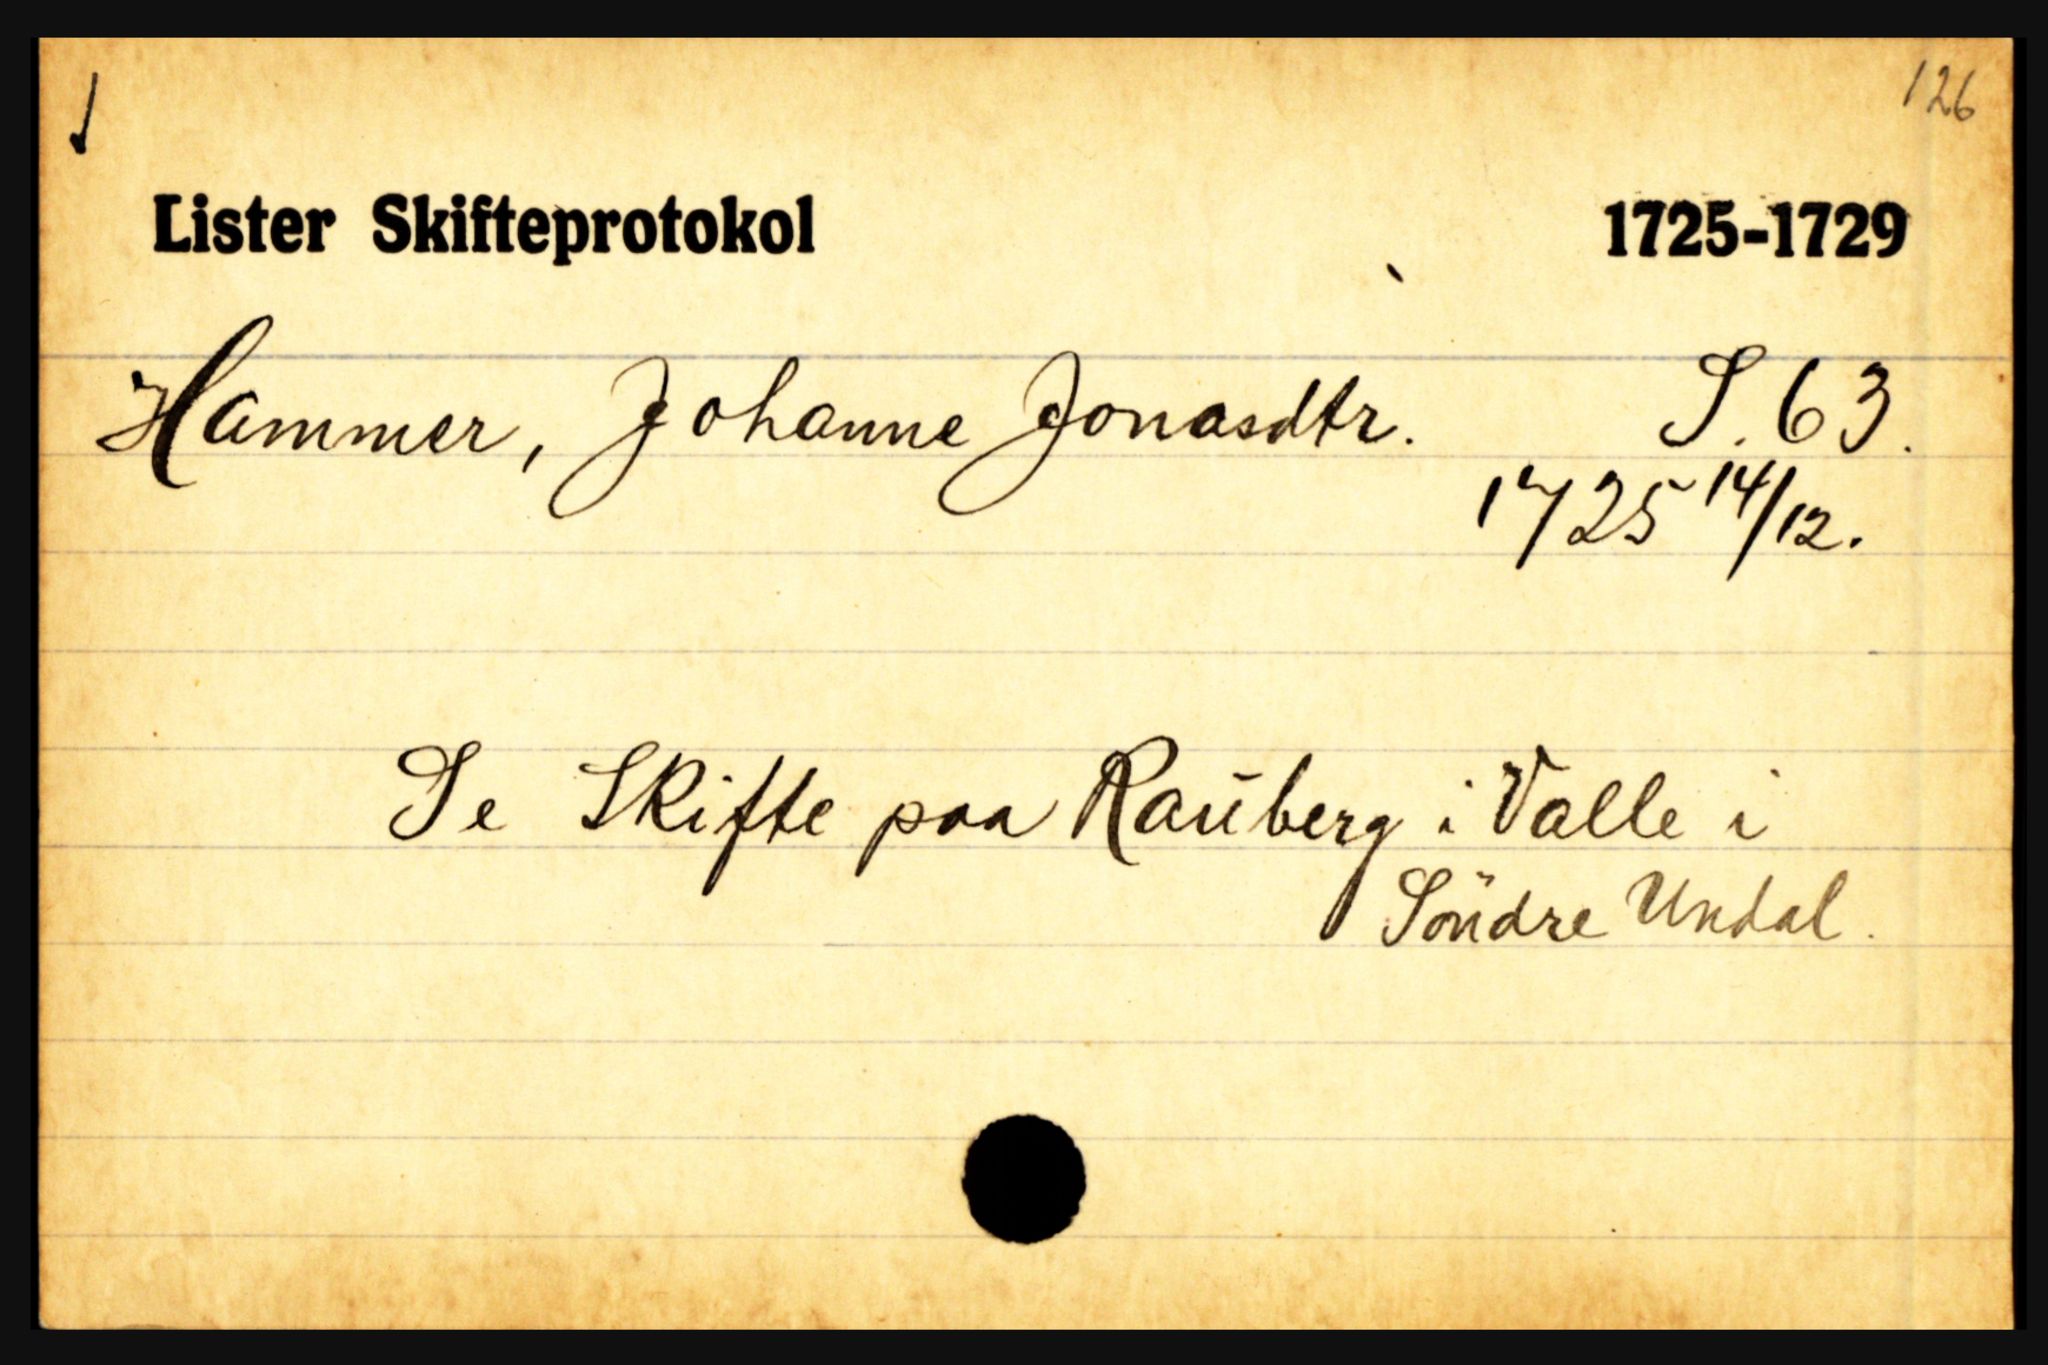 126
Lister Skifteprotokol 1725-1729
Hammer, Johanne Jonasdtr. S. 63.
1725 14/12.
Se Skifte paa Rauberg i Valle i
Söndre Undal.